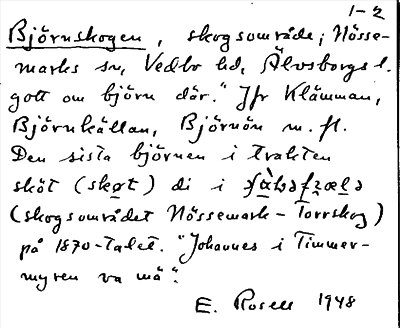 1-2
Björnskogen, skogsområde i Nösse-
marks sn, Vedbo hd, Älvsborgs l.
gott om björn där." Jfr Klämman,
Björnkällan, Björnön m. fl.
Den sista björnen i trakten
sköt (skøt) di i
(skogsområdet Nössemark-Torrskog)
på 1870-talet. "Johannes i Timmer-
myren va mä".
E. Rosell 1948